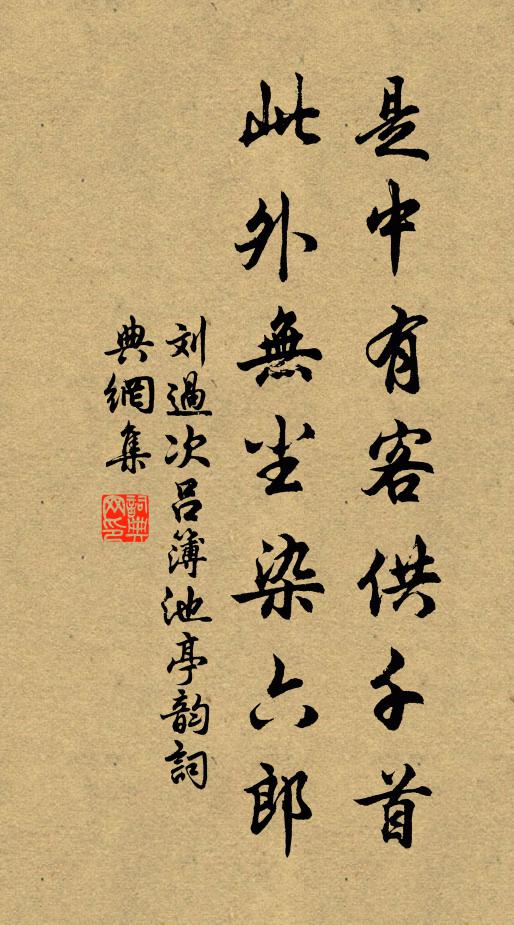 是中有客供千首
此外無尘染六郎
刘過次吕簿池亭韵詞
典網集
詞典網印